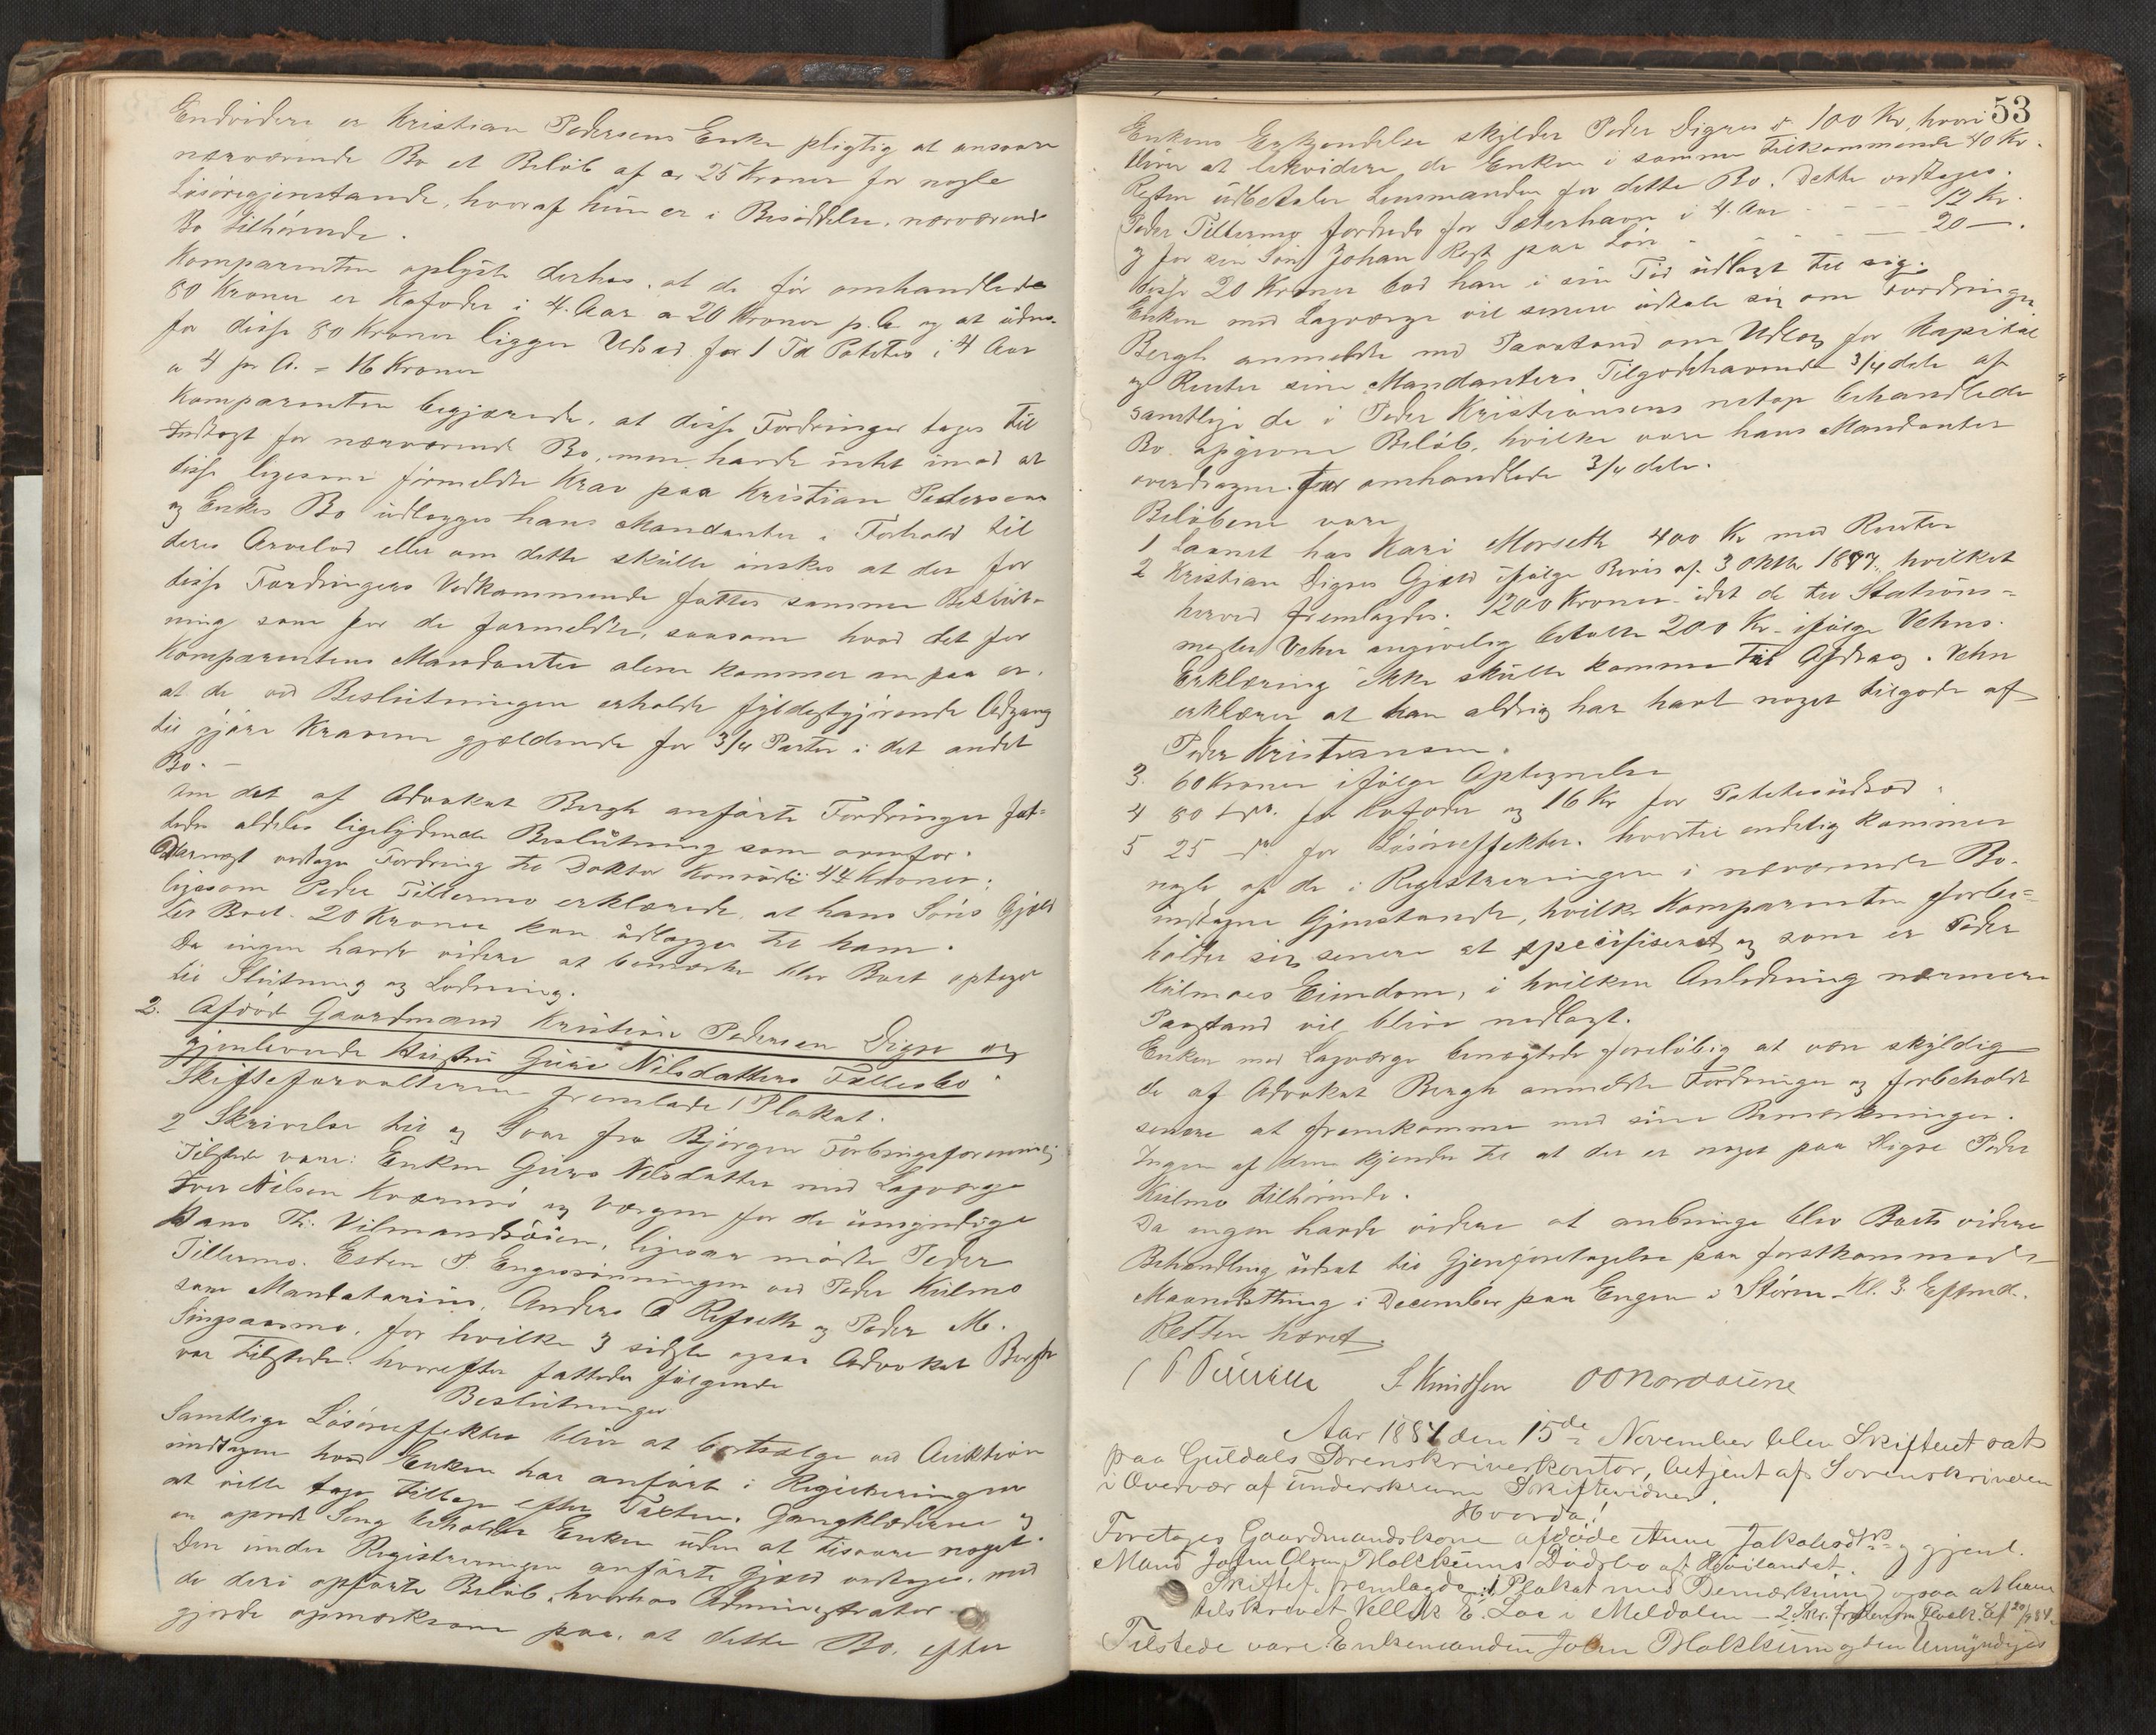 Endvidere er Kristian Pedersens Enke pligtig at ansvare
nærværende Bo et Beløb af ca 25 Kroner for nogle
Løsøregjenstande, hvoraf hun er i Besiddelse, nærværende
Bo tilhørende.
Komparenten oplyste derhos, at de før omhandlede
80 Kroner er Kofoder i 4 Aar a 20 Kroner p. A og at uden-
for disse 80 Kroner ligger Udsæd for 1 Td Potetes i 4 Aar
a 4 pr A. = 16 Kroner
Komparenten begjærede, at disse Fordringer tages til
Indtægt for nærværende Bo, men havde intet imod at
disse ligesom førmeldte Krav paa Kristian Pedersens
og Enkes Bo udlægges hans Mandanter i Forhold til
deres Arvelod eller om dette skulle ønskes at der for
disse Fordringers Vedkommende fattes samme Beslut-
ning som for de førmeldte, saasom hvad det for
Komparentens Mandanter alene kommer an paa er,
at de ved Beslutningen erholde fyldestgjørende Adgang
til gjøre Kravene gjældende for 3/4 Parter i det andet
Bo. —
Om det af Advokat Bergh anførte Fordringer fat-
tedes aldeles ligelydende Beslutning som ovenfor.
Dernæst vedtages Fordring til Doktor Konradi 44 Kroner;
ligesom Peder Tillermo erklærede, at hans Søns Gjæld
til Boet 20 Kroner kan udlægges til ham.
Da ingen havde videre at bemærke blev Boet optaget
til Slutning og Lodning.
2. Afdød Gaardmand Kristian Pedersen Digre og
gjenlevende Hustru Guru Nilsdatters Fællesbo
Skifteforvalteren fremlagde 1 Plakat.
2 Skrivelse til og Svar fra Bjørgen Forbrugsforening
Tilstede vare: Enken Guru Nilsdatter med Lagværge
Iver Nilsen Kværnrø og Værgen for de umyndige
Hans Th. Vilmandsøien, ligesom mødte Peder
Tillermo. Esten P. Engesrønningen ved Peder Kulmo
som Mandatarius, Anders O Refseth og Peder M.
Singsaasmo, for hvilke 3 sidste ogsaa Advokat Bergh
var tilstede. hvorefter fattedes følgende
Beslutninger
Samtlige Løsøreeffekter blive at bortsælge ved Auktion
undtagen hvad Enken har anført i Registreringen
at ville tage tilbage efter Taxten. Gangklæderne og
en opredt Seng beholder Enken uden at tilsvare noget.
Den under Registreringen anførte Gjæld vedtages, med
de deri opførte Beløb, hvorhos Administrator
gjorde opmærksom paa, at dette Bo, efter
53
Enkens Erkjendelse skylder Peder Digres do 100 Kr, hvori
bliver at likvidere de Enken i samme tilkommende 40 Kr.
Resten udbetaler Lensmanden for dette Bo. Dette vedtages.
Peder Tillermo fordrede for Sæterhavn i 4 Aar - - - 12 Kr.
og for sin Søn Johan Rest paa Løn - - - - 20 —.
disse 20 Kroner bad han i sin Tid udlagt til sig.
Enken med Lagværge vil senere udtale sig om Fordringen
Bergh anmeldte med Paastand om Udlæg for Kapital
og Renter sine Mandanters Tilgodehavende 3/4 dele af
samtlige de i Peder Kristiansens netop behandlede
Bo opgivne Beløb, hvilke vare hans Mandanter
overdragne for omhandlede 3/4 dele.
Beløbene vare
1 Laanet hos Kari Morseth 400 Kr med Renter
2 Kristian Digres Gjæld ifølge Bevis af 3 Oktbr 1877, hvilket
herved fremlagdes. 1200 Kroner idet de til Stations-
mester Vehn angivelig betalte 200 Kr ifølge Vehns
Erklæring ikke skulle komme til Afdrag. Vehn
erklærer at han aldrig har havt noget tilgode af
Peder Kristiansen.
3. 60 Kroner ifølge Optegnelse
4 80 do. for Kofoder og 16 Kr for Potetesudsæd.
5 25 do for Løsøreeffekter. hvortil endelig kommer
nogle af de i Registreringen i nærværende Bo
indtagne Gjenstande, hvilke Komparenten forbe-
holder sig senere at specifiseret og som er Peder
Kulmoes Eiendom, i hvilken Anledning nærmere
Paastand vil blive nedlagt.
Enken med Lagværge benægtede foreløbig at være skyldig
de af Advokat Bergh anmeldte Fordringer og forbeholdt
senere at fremkomme med sine Bemærkninger.
Ingen af dem kjender til at der er noget paa Digre Peder
Kulmo tilhørende.
Da ingen havde videre at anbringe blev Boets videre
Behandling udsat til Gjenforetagelse paa førstkommende
Maanedsthing i December paa Engen i Støren Kl. 3 Eftmd.
Retten hævet.
S. Knudsen O O Nordaune
Aar 1884 den 15de November blev Skifteret sat
paa Guldals Sorenskriverkontor, betjent af Sorenskriveren
i Overvær af underskrevne Skiftevidner.
Hvorda!
Foretages Gaardmandskone afdøde Anne Jakobsdtrs og gjenl.
Mand John Olsen Holtkums Dødsbo af Høilandet.
Skiftef. fremlagde: 1 Plakat med Bemærkning ogsaa at have
tilskrevet E. Loe i Meldalen — 2 Skr.
Tilstede vare: Enkemanden John Holtkum og den Umyndiges